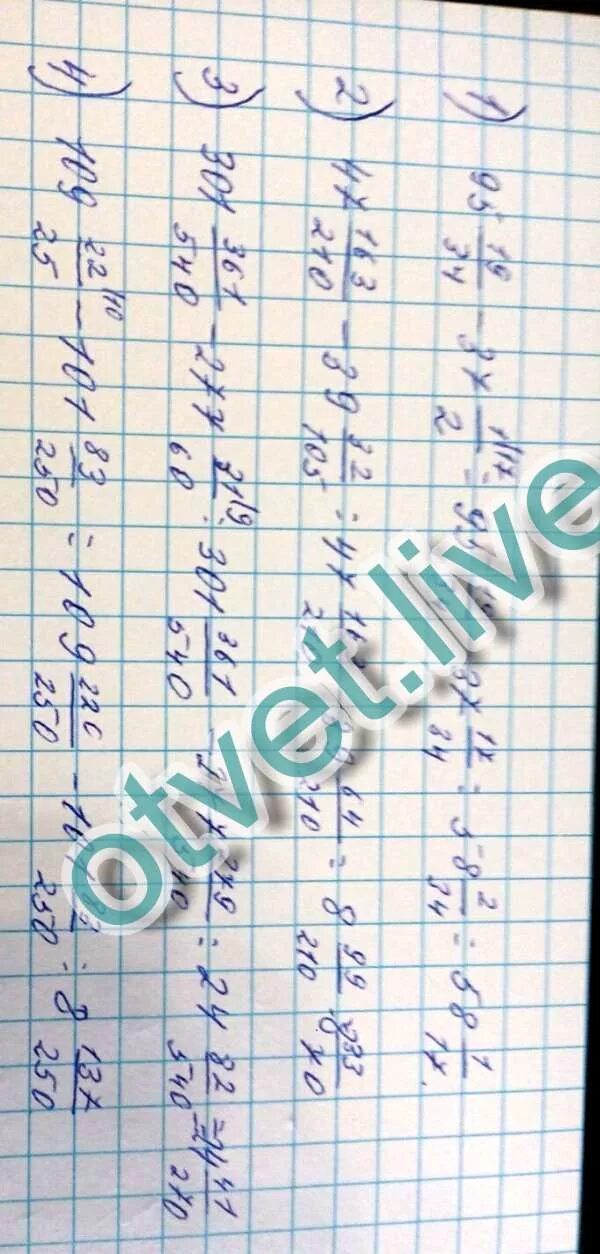 1) 95 19/34 - 37 1/2 ^17 = 95 19/ 37 17/34 = 58 2/34 = 58 1/17.
2) 47 163/210 - 39 32/105 = 47 39 64/210 = 8 99/210 = 8 33/70
3) 301 361/540 - 277 31/60 ^9 = 301 361/540 - 277 279/540 = 24 82/540 = 24 41/270
4) 109 22/25 ^10 - 101 83/250 = 109 220/250 - 101 83/250 = 8 137/250
otvet.live